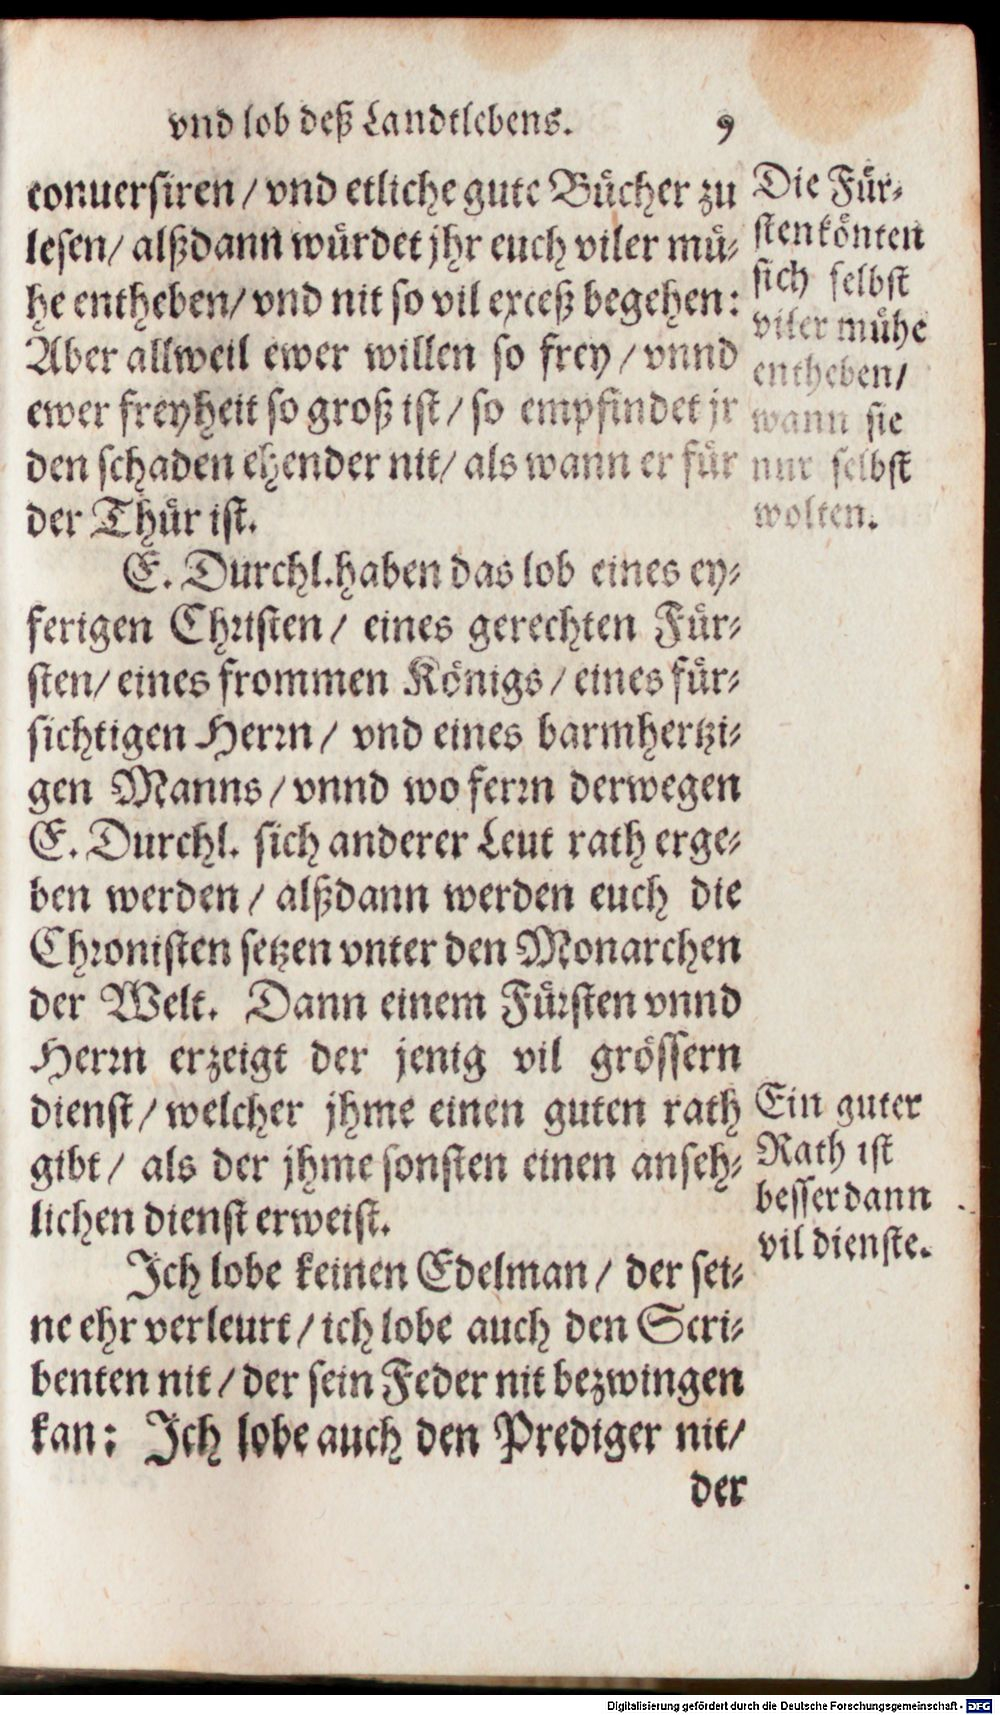 vnd lob deß Landtlebens. 9
conuersiren / vnd etliche gute Bücher zu
lesen / alßdann würdet jhr euch viler mü⸗
he entheben / vnd nit so vil exceß begehen:
Aber allweil ewer willen so frey / vnnd
ewer freyheit so groß ist / so empfindet jr
den schaden ehender nit / als wann er für
der Thür ist.
E. Durchl. haben das lob eines ey⸗
ferigen Christen / eines gerechten Für⸗
sten / eines frommen Königs / eines für⸗
sichtigen Herrn / vnd eines barmhertzi⸗
gen Manns / vnnd wo ferrn derwegen
E. Durchl. sich anderer Leut rath erge⸗
ben werden / alßdann werden euch die
Chronisten setzen vnter den Monarchen
der Welt. Dann einem Fürsten vnnd
Herrn erzeigt der jenig vil grössern
dienst / welcher jhme einen guten rath
gibt / als der jhme sonsten einen anseh⸗
lichen dienst erweist.
Ich lobe keinen Edelman / der sei⸗
ne ehr verleurt / ich lobe auch den Scri⸗
benten nit / der sein Feder nit bezwingen
kan: Ich lobe auch den Prediger nit /
der
Die Für⸗
sten könten
sich selbst
viler mühe
entheben /
wann sie
nur selbst
wolten.
Ein guter
Rath ist
besser dann
vil dienste.
Digitalisierung gefördert durch die Deutsche Forschungsgemeinschaft - DFG